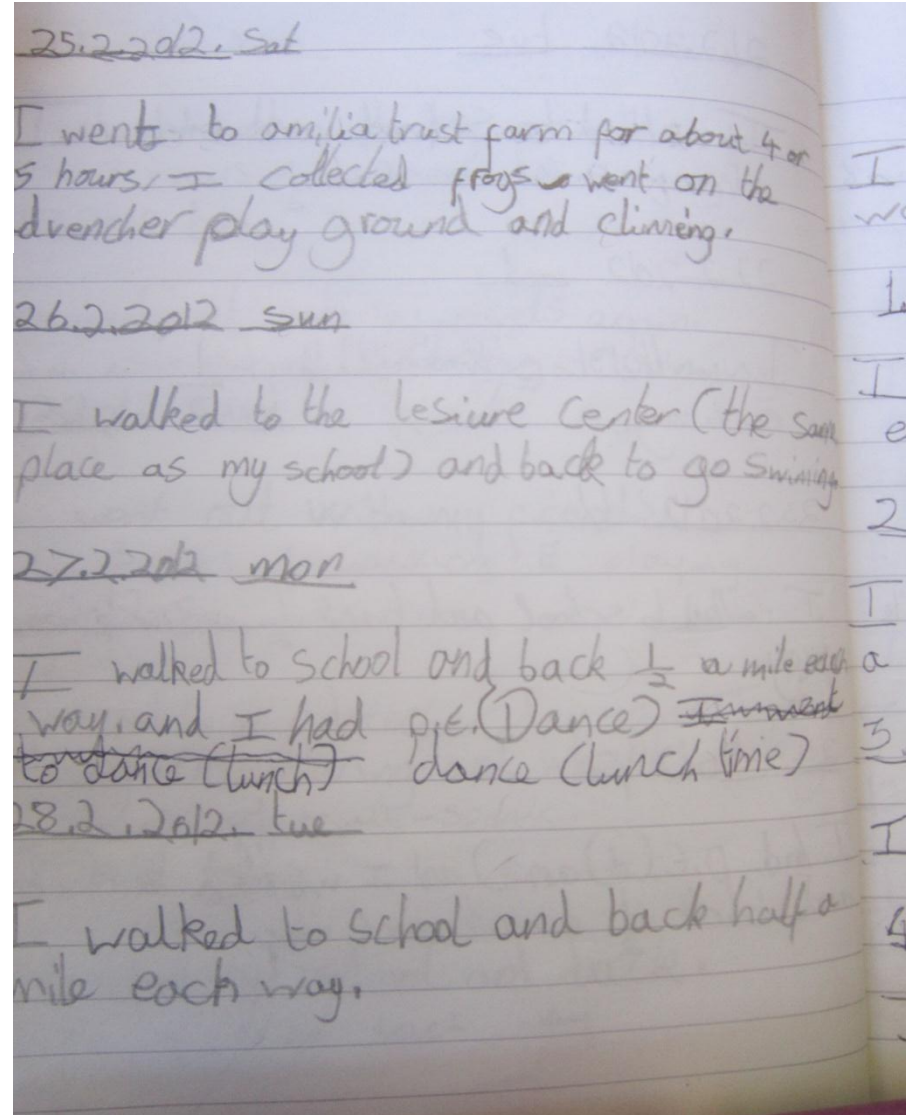 25.2.2012. Sat
I went to amilia trust farm for about 4 or
5 hours, I collected frogs went on the
dvencher play ground and climing.
26.2.2012 sun
I walked to the lesiure center (the same
place as my school) and back to go swiming
27.2.2012 mon
I walked to school and back 1/2 a mile each
way. and I had p.E.(Dance)
to dance (lunch) dance (lunch time)
28.2.2012. tue
I walked to school and back half a
mile each way.
I
1
I
e
2
I
a
3
I
4